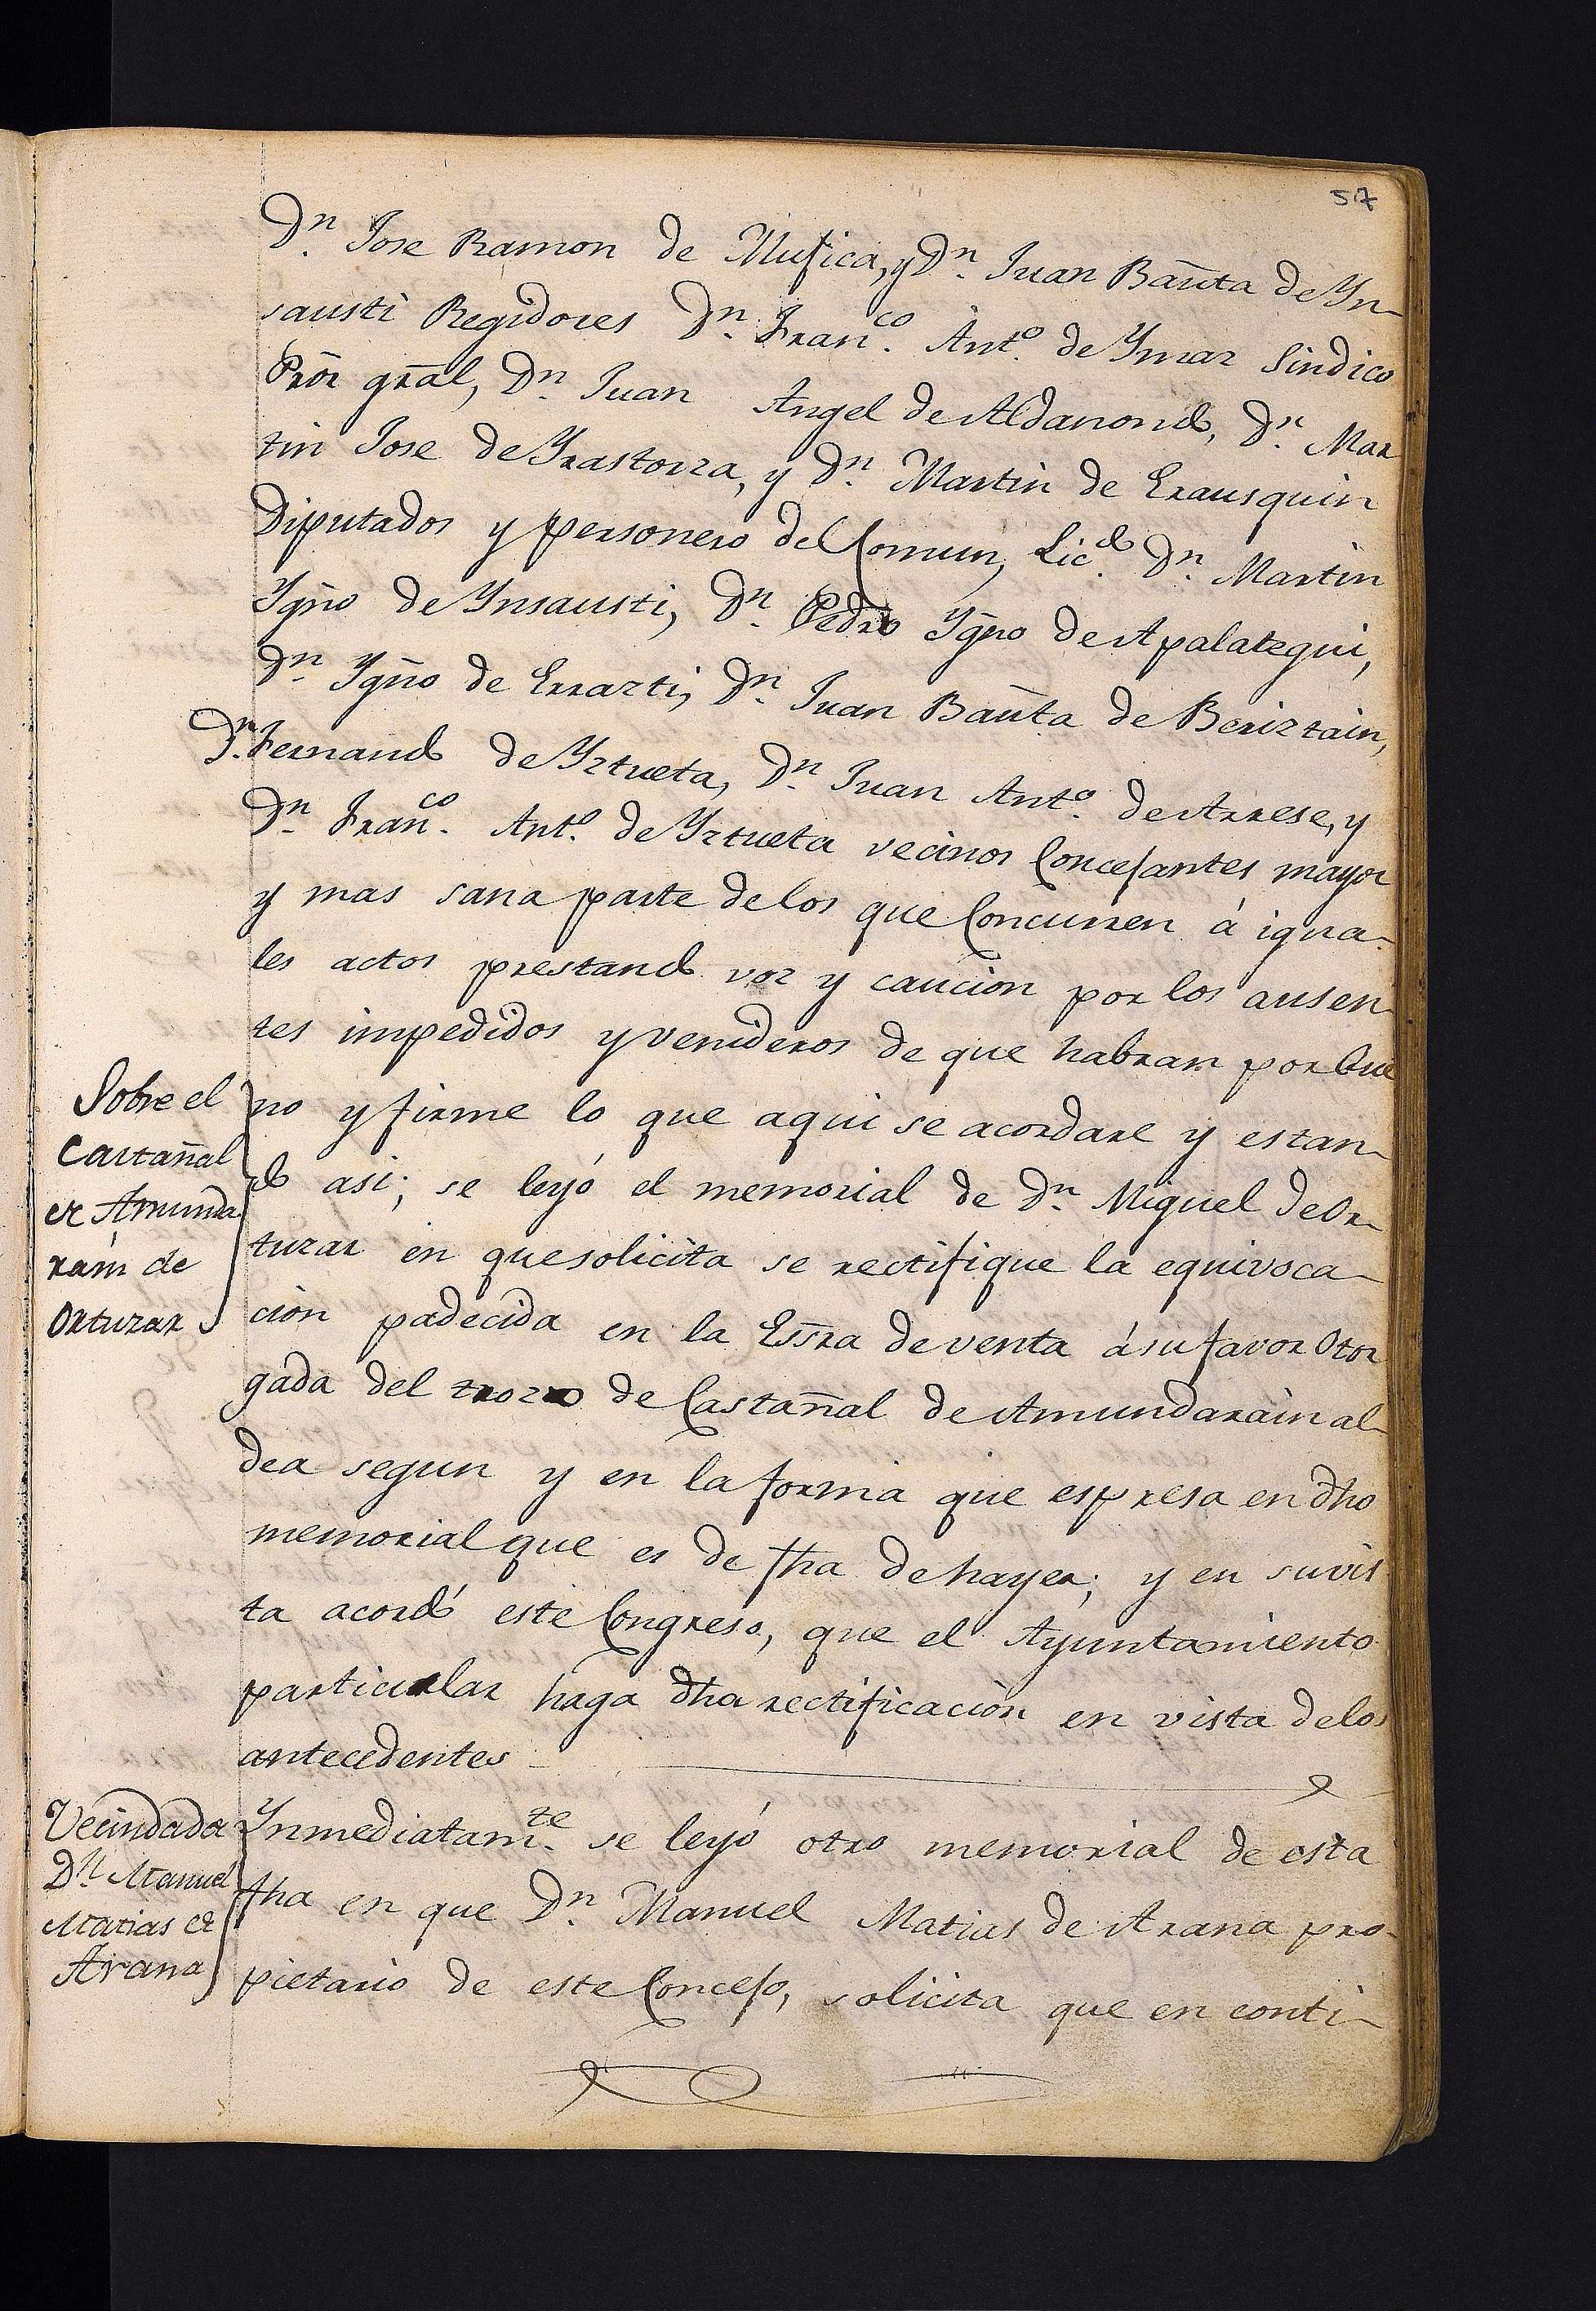 57
Dn. Jose Ramon de Mujica, y Dn. Juan Bauta de Yn-
sausti Regidores Dn. Franco. Anto. de Ymaz Sindico
Pror gral, Dn. Juan Angel de Aldanondo, Dn. Mar
tin Jose de Yrastorza, y Dn. Martin de Erausquin
Diputados y personero del Comun, Licdo. Dn. Martin
Ygno de Ynsausti, Dn. Pedro Ygno de Apalategui,
Dn. Ygno de Errazti, Dn. Juan Bauta de Beriztain,
Dn. Fernando de Yztueta, Dn. Juan Anto. de Arrese, y
Dn. Franco. Anto. de Yztueta vecinos Concejantes mayor
y mas sana parte de los que Concurren á igua-
les actos prestando voz y caucion por los ausen-
tes impedidos y venideros de que habran por bue
no y firme lo que aqui se acordare y estan-
do asi; se leyó el memorial de Dn. Miguel de Or-
tuzar en que solicita se rectifique la equivoca-
cion padecida en la Essra de venta á su favor Otor
gada del trozo de Castañal de Amundarain al-
dea segun y en la forma que espresa en dho
memorial que es de fha de hayer; y en su vis
ta acordó este Congreso, que el Ayuntamiento
particular haga dha rectificacion en vista de los
antecedentes
Sobre el
Castañal
de Amunda
rain de
Ortuzar
Ynmediatamte. se leyó otro memorial de esta
fha en que Dn. Manuel Matias de Arana pro-
pietario de este Concejo, solicita que en conti-
Vecindad a
Dn. Manuel
Matias de
Arana